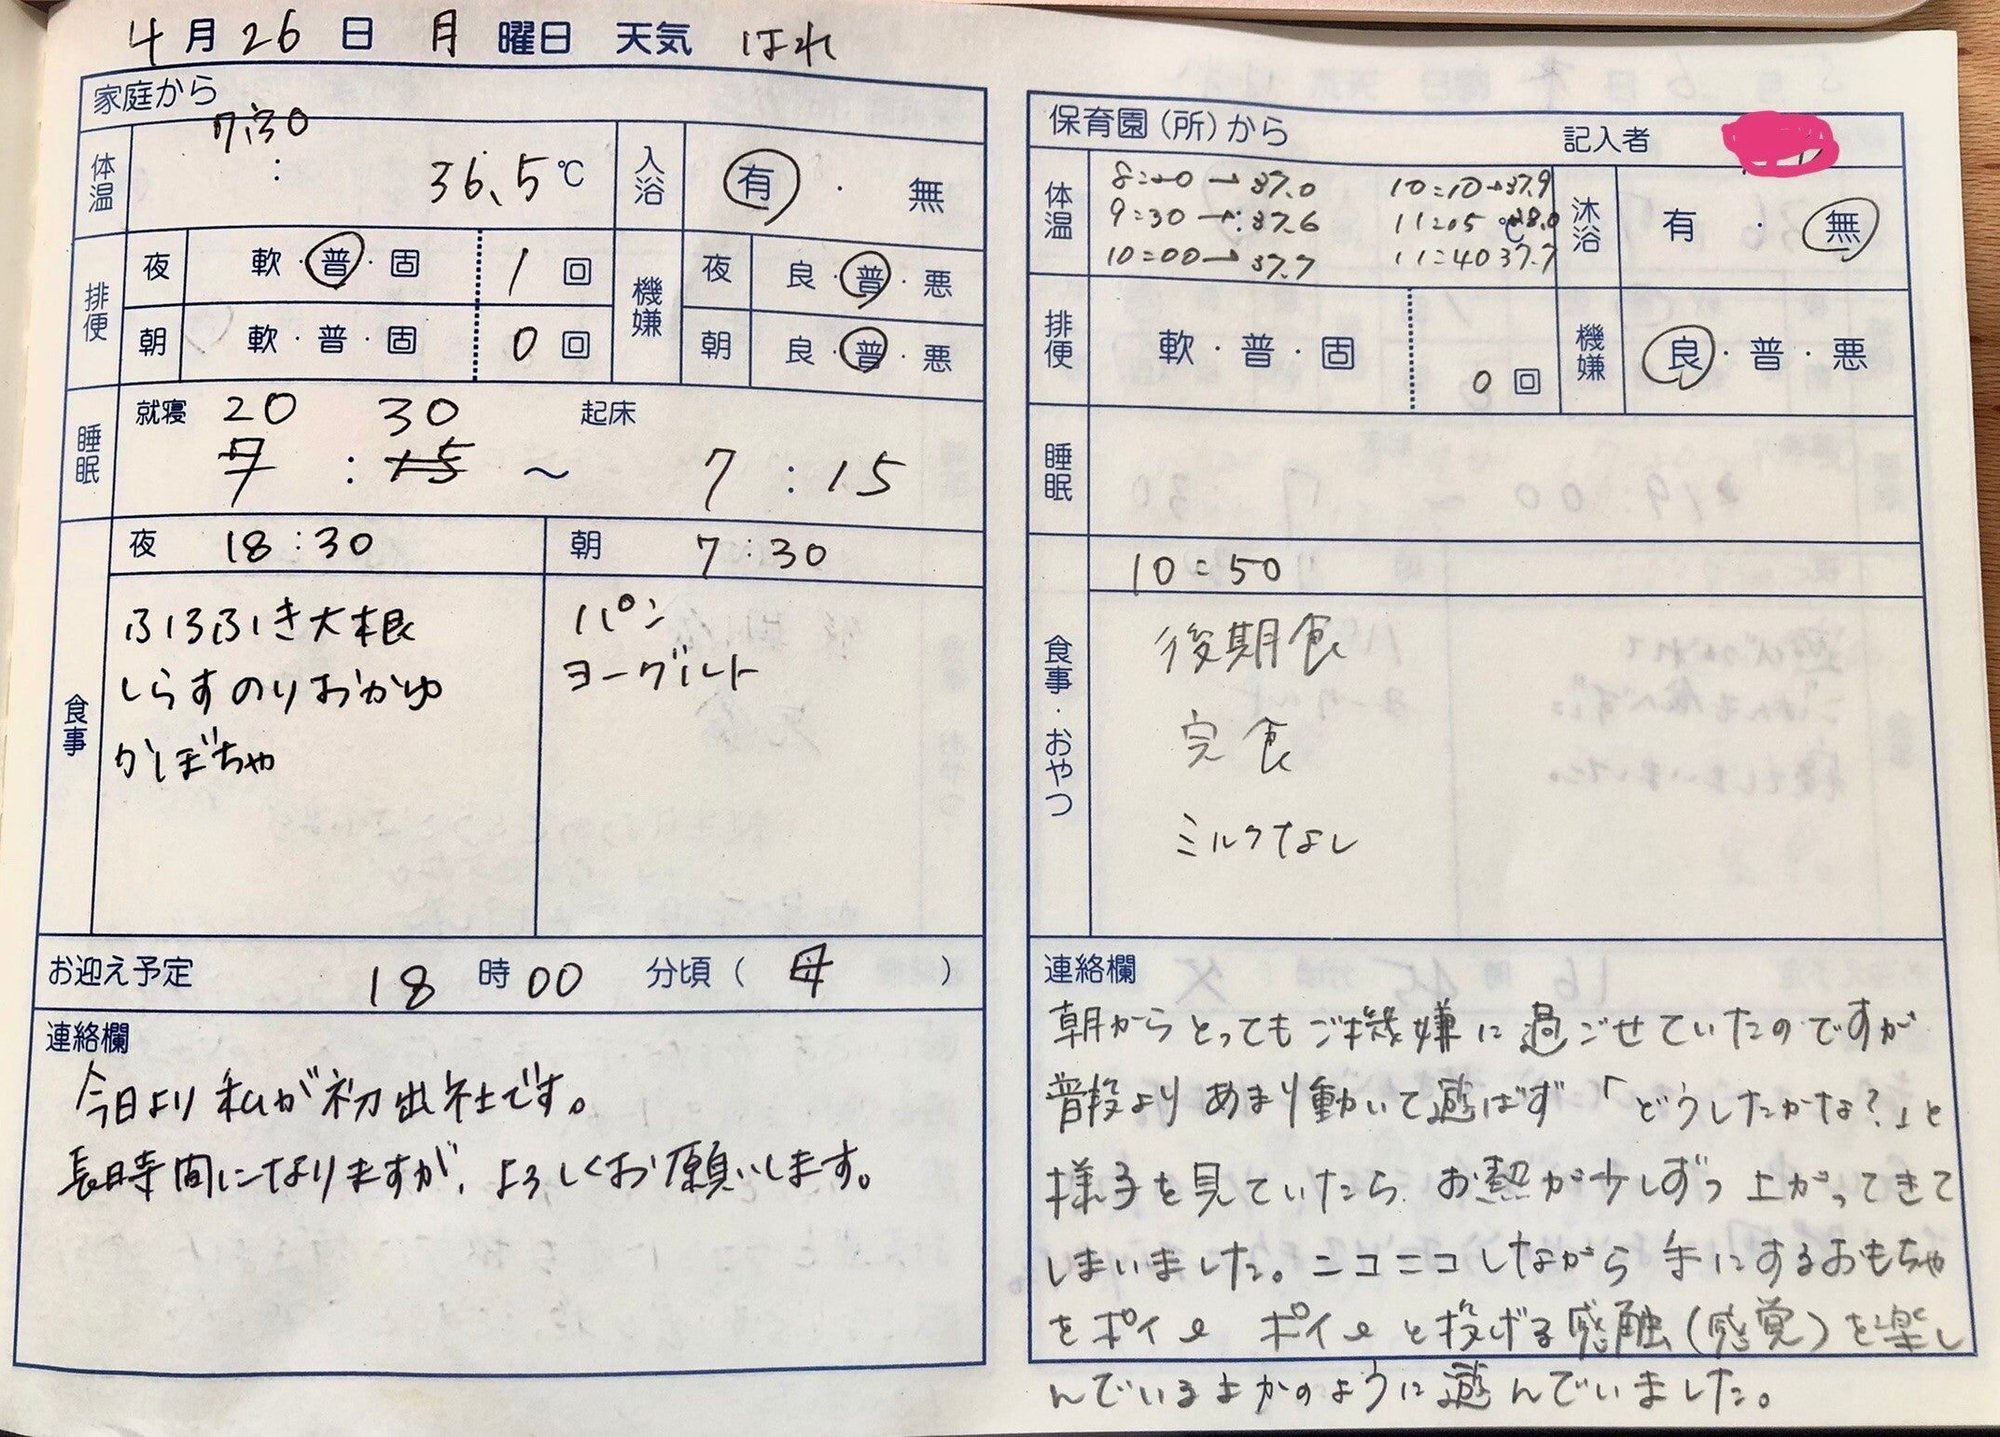 4月26日 月曜日 天気 はれ
家庭から
体温 7:30 : 36.5℃ 入浴 有・無
排便 夜 軟・普・固 1回 機嫌 夜 良・普・悪
朝 軟・普・固 0回 朝 良・普・悪
睡眠 就寝 20 30 起床
: ~ 7:15
食事 夜 18:30 朝 7:30
ふろふき大根
しらすのりおかゆ
かぼちゃ
パン
ヨーグルト
お迎え予定 18時00分頃(母)
連絡欄
今日より私が初出社です。
長時間になりますが、よろしくお願いします。
保育園(所)から 記入者
体温 37.0 10:10→37.9 沐浴 有・無
9:30→37.6 11:05 ℃
10:00→37.7 11:40 37.7
排便 軟・普・固 0回 機嫌 良・普・悪
睡眠
食事・おやつ 10:50
後期食
完食
ミルクなし
連絡欄
朝からとってもご機嫌に過ごせていたのですが
普段よりあまり動いて遊ばず「どうしたかな?」と
様子を見ていたら お熱が少しずつ上がってきて
しまいました。ニコニコしながら手にするおもちゃ
をポイッ ポイッと投げる感触(感覚)を楽し
んでいるよかのように遊んでいました。